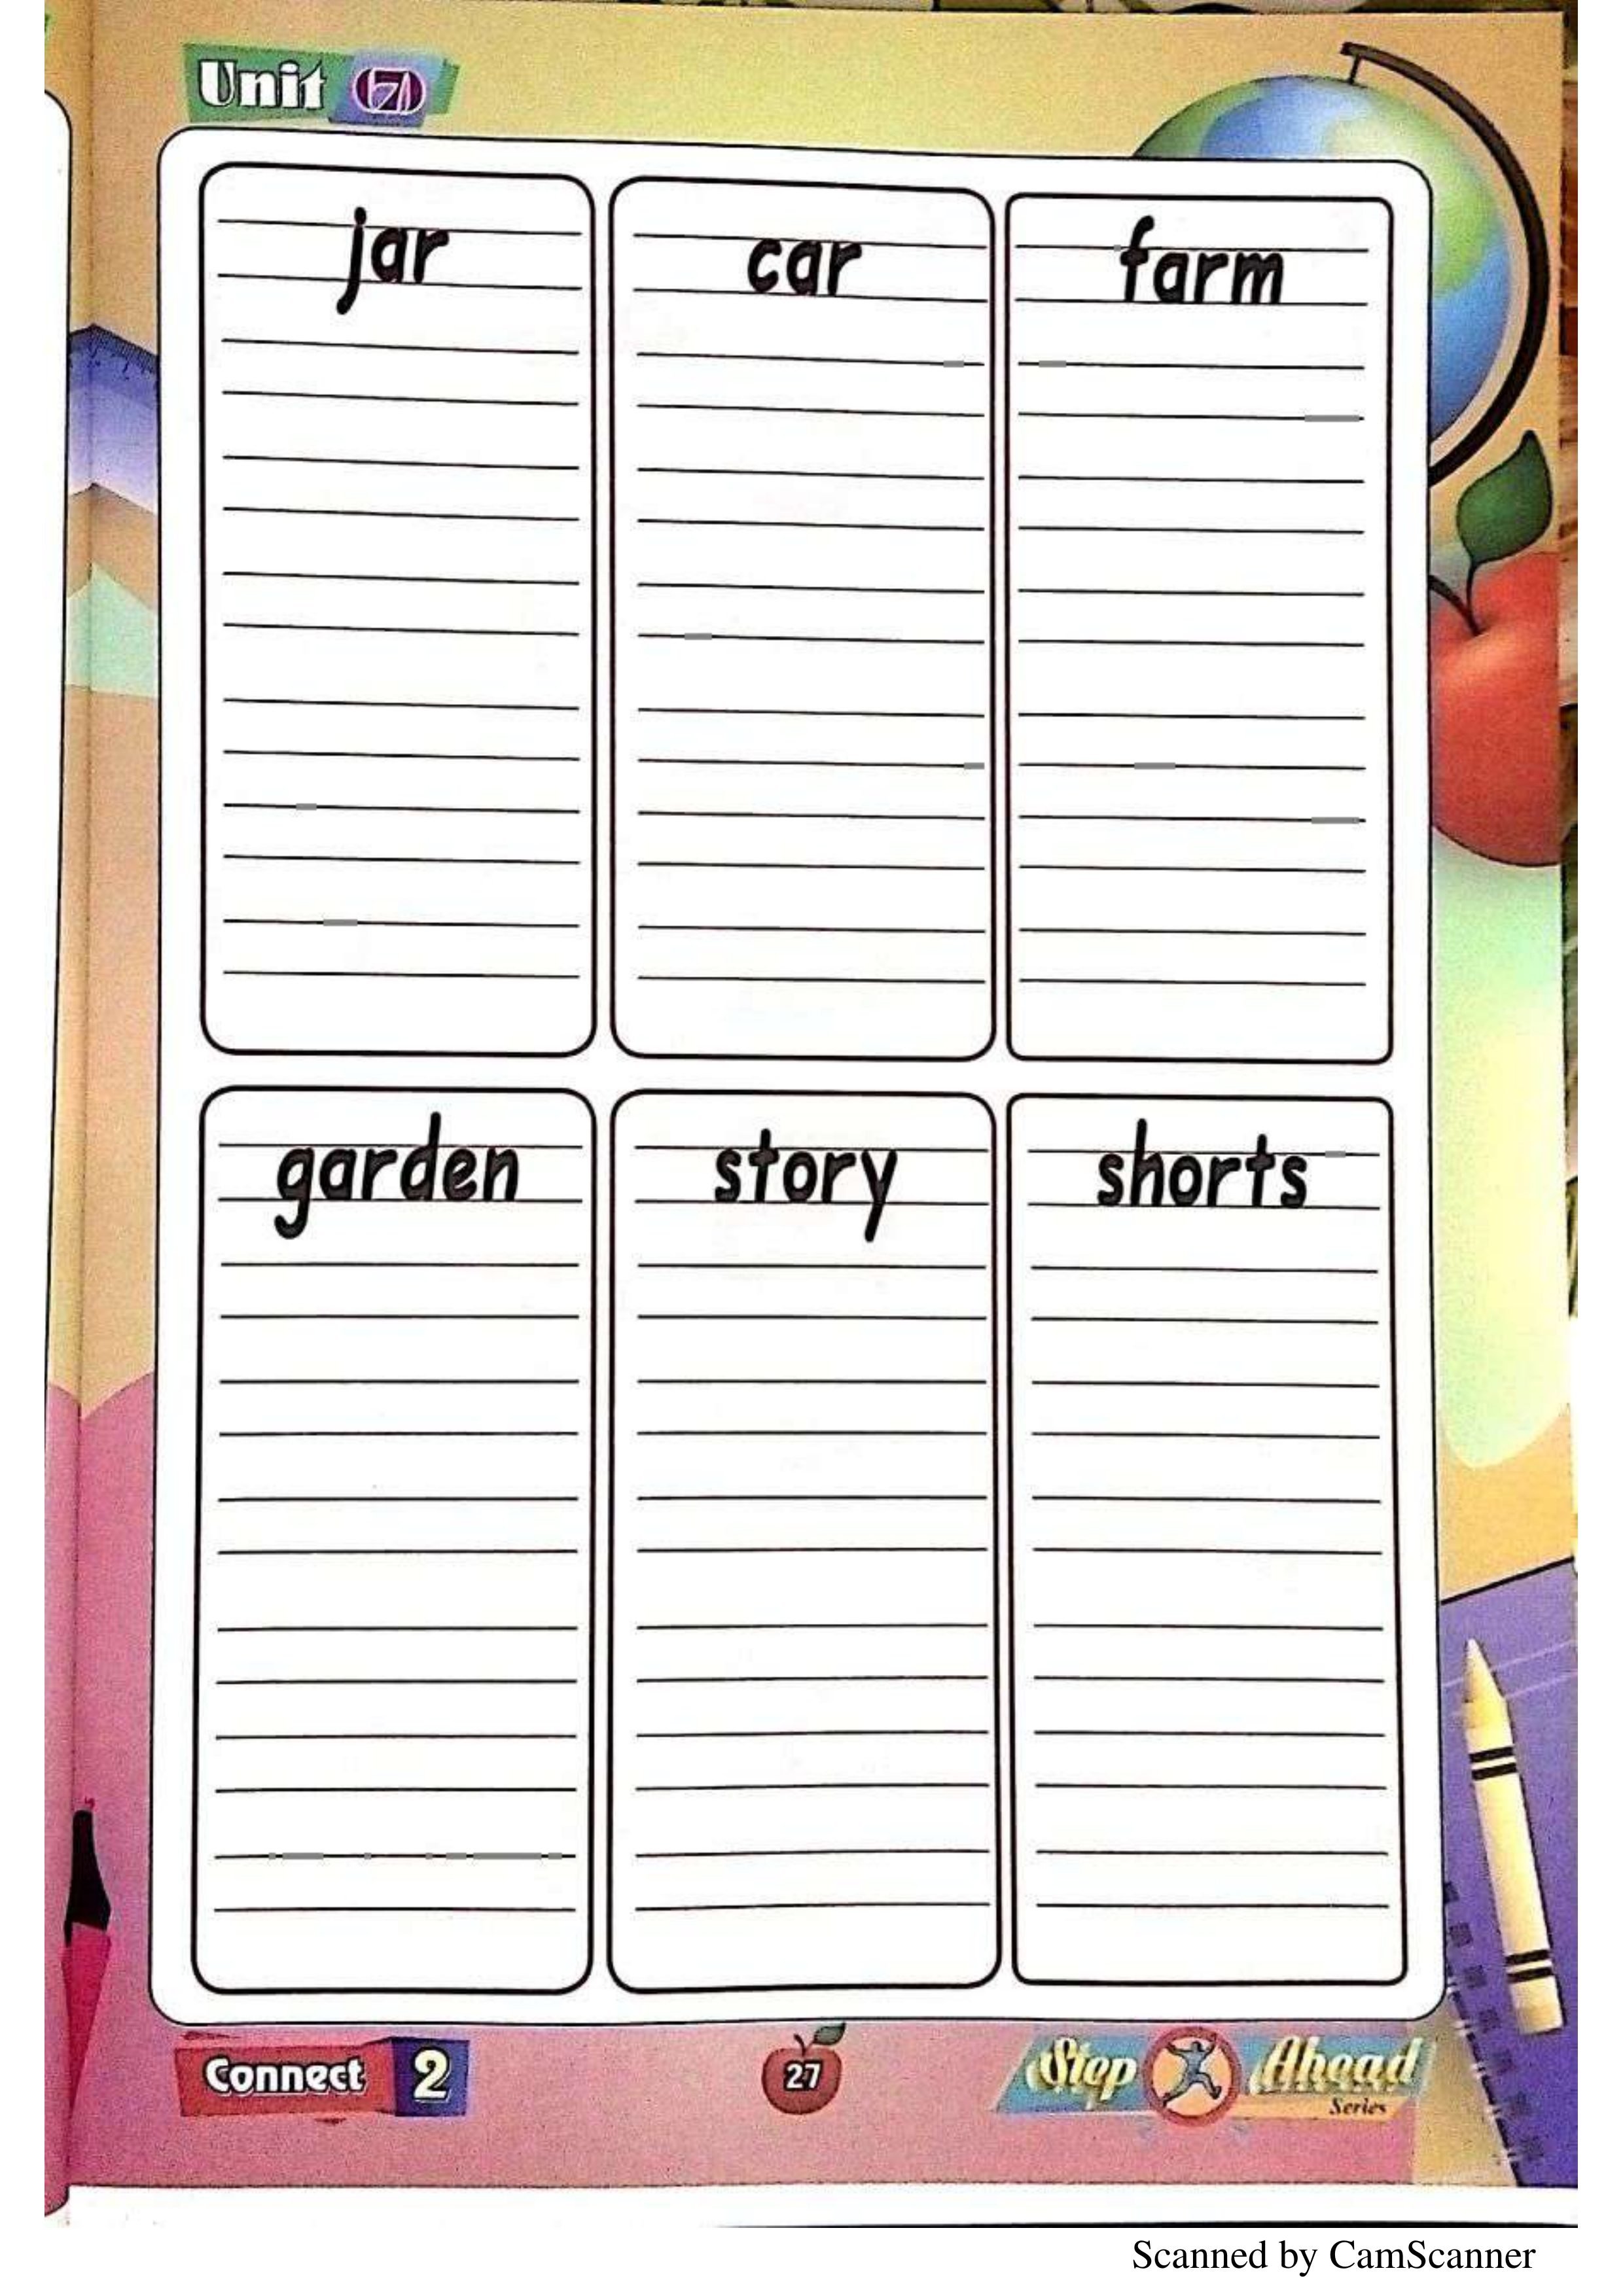 Unit 7
jar
car
farm
garden
story
shorts
Connect 2
27
Step Ahead
Series
Scanned by CamScanner